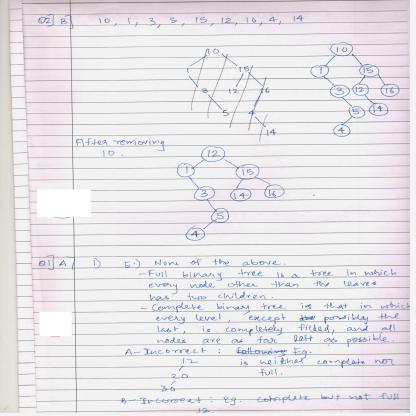 Q2] B] 10, 1, 3, 5, 15, 12, 16, 4, 14
10
1 15
3 12 16
5 4
14
10
1 15
3 12 16
5 14
4
After removing
10.
12
1 15
3 14 16
5
4
Q1] A, 1) 5.) None of the above.
- Full binary tree is a tree in which
every node other than the leaves
has two children.
- Complete binary tree is that in which
every level, except possibly the
last, is completely filled, and all
nodes are as far left as possible.
A - Incorrect : Eg.
12 is neither complete nor
20 full.
30
B - Incorrect : Eg. complete but not full
12